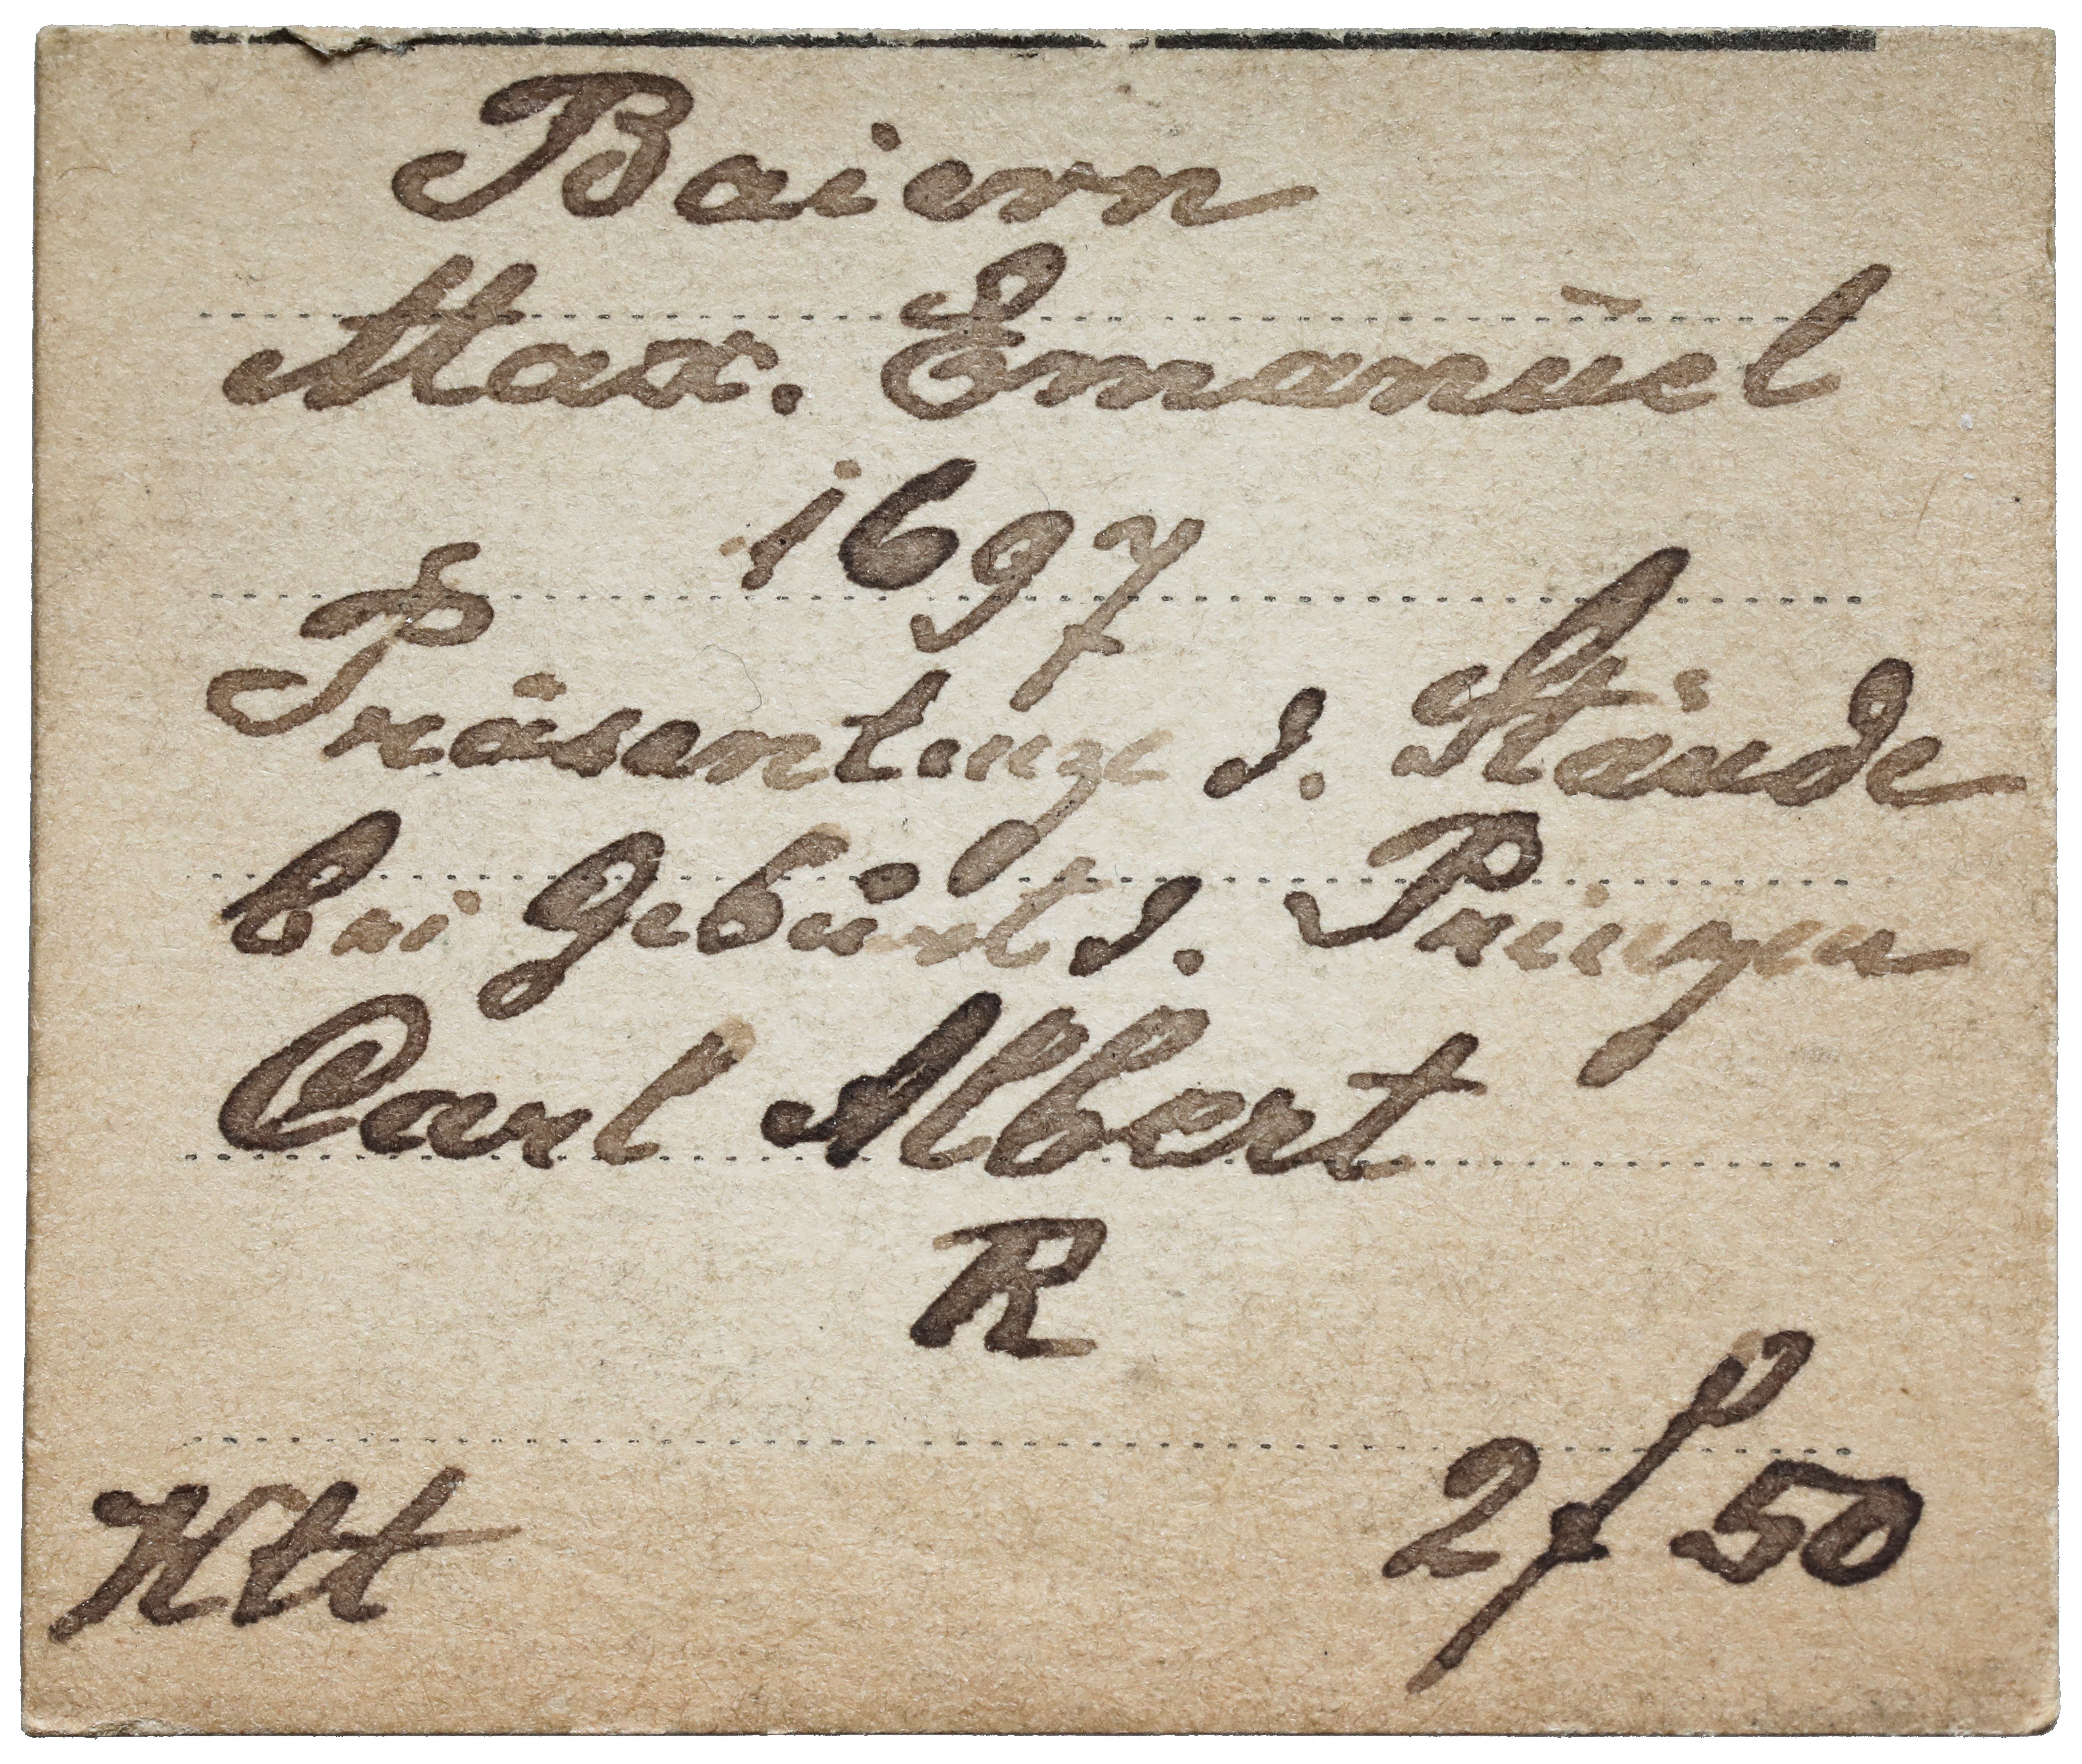 Baiern
Max. Emanuel
1697
Präsentinze d. Stände
bei Geburt d. Prinzen
Carl Albert
R
2 f 50